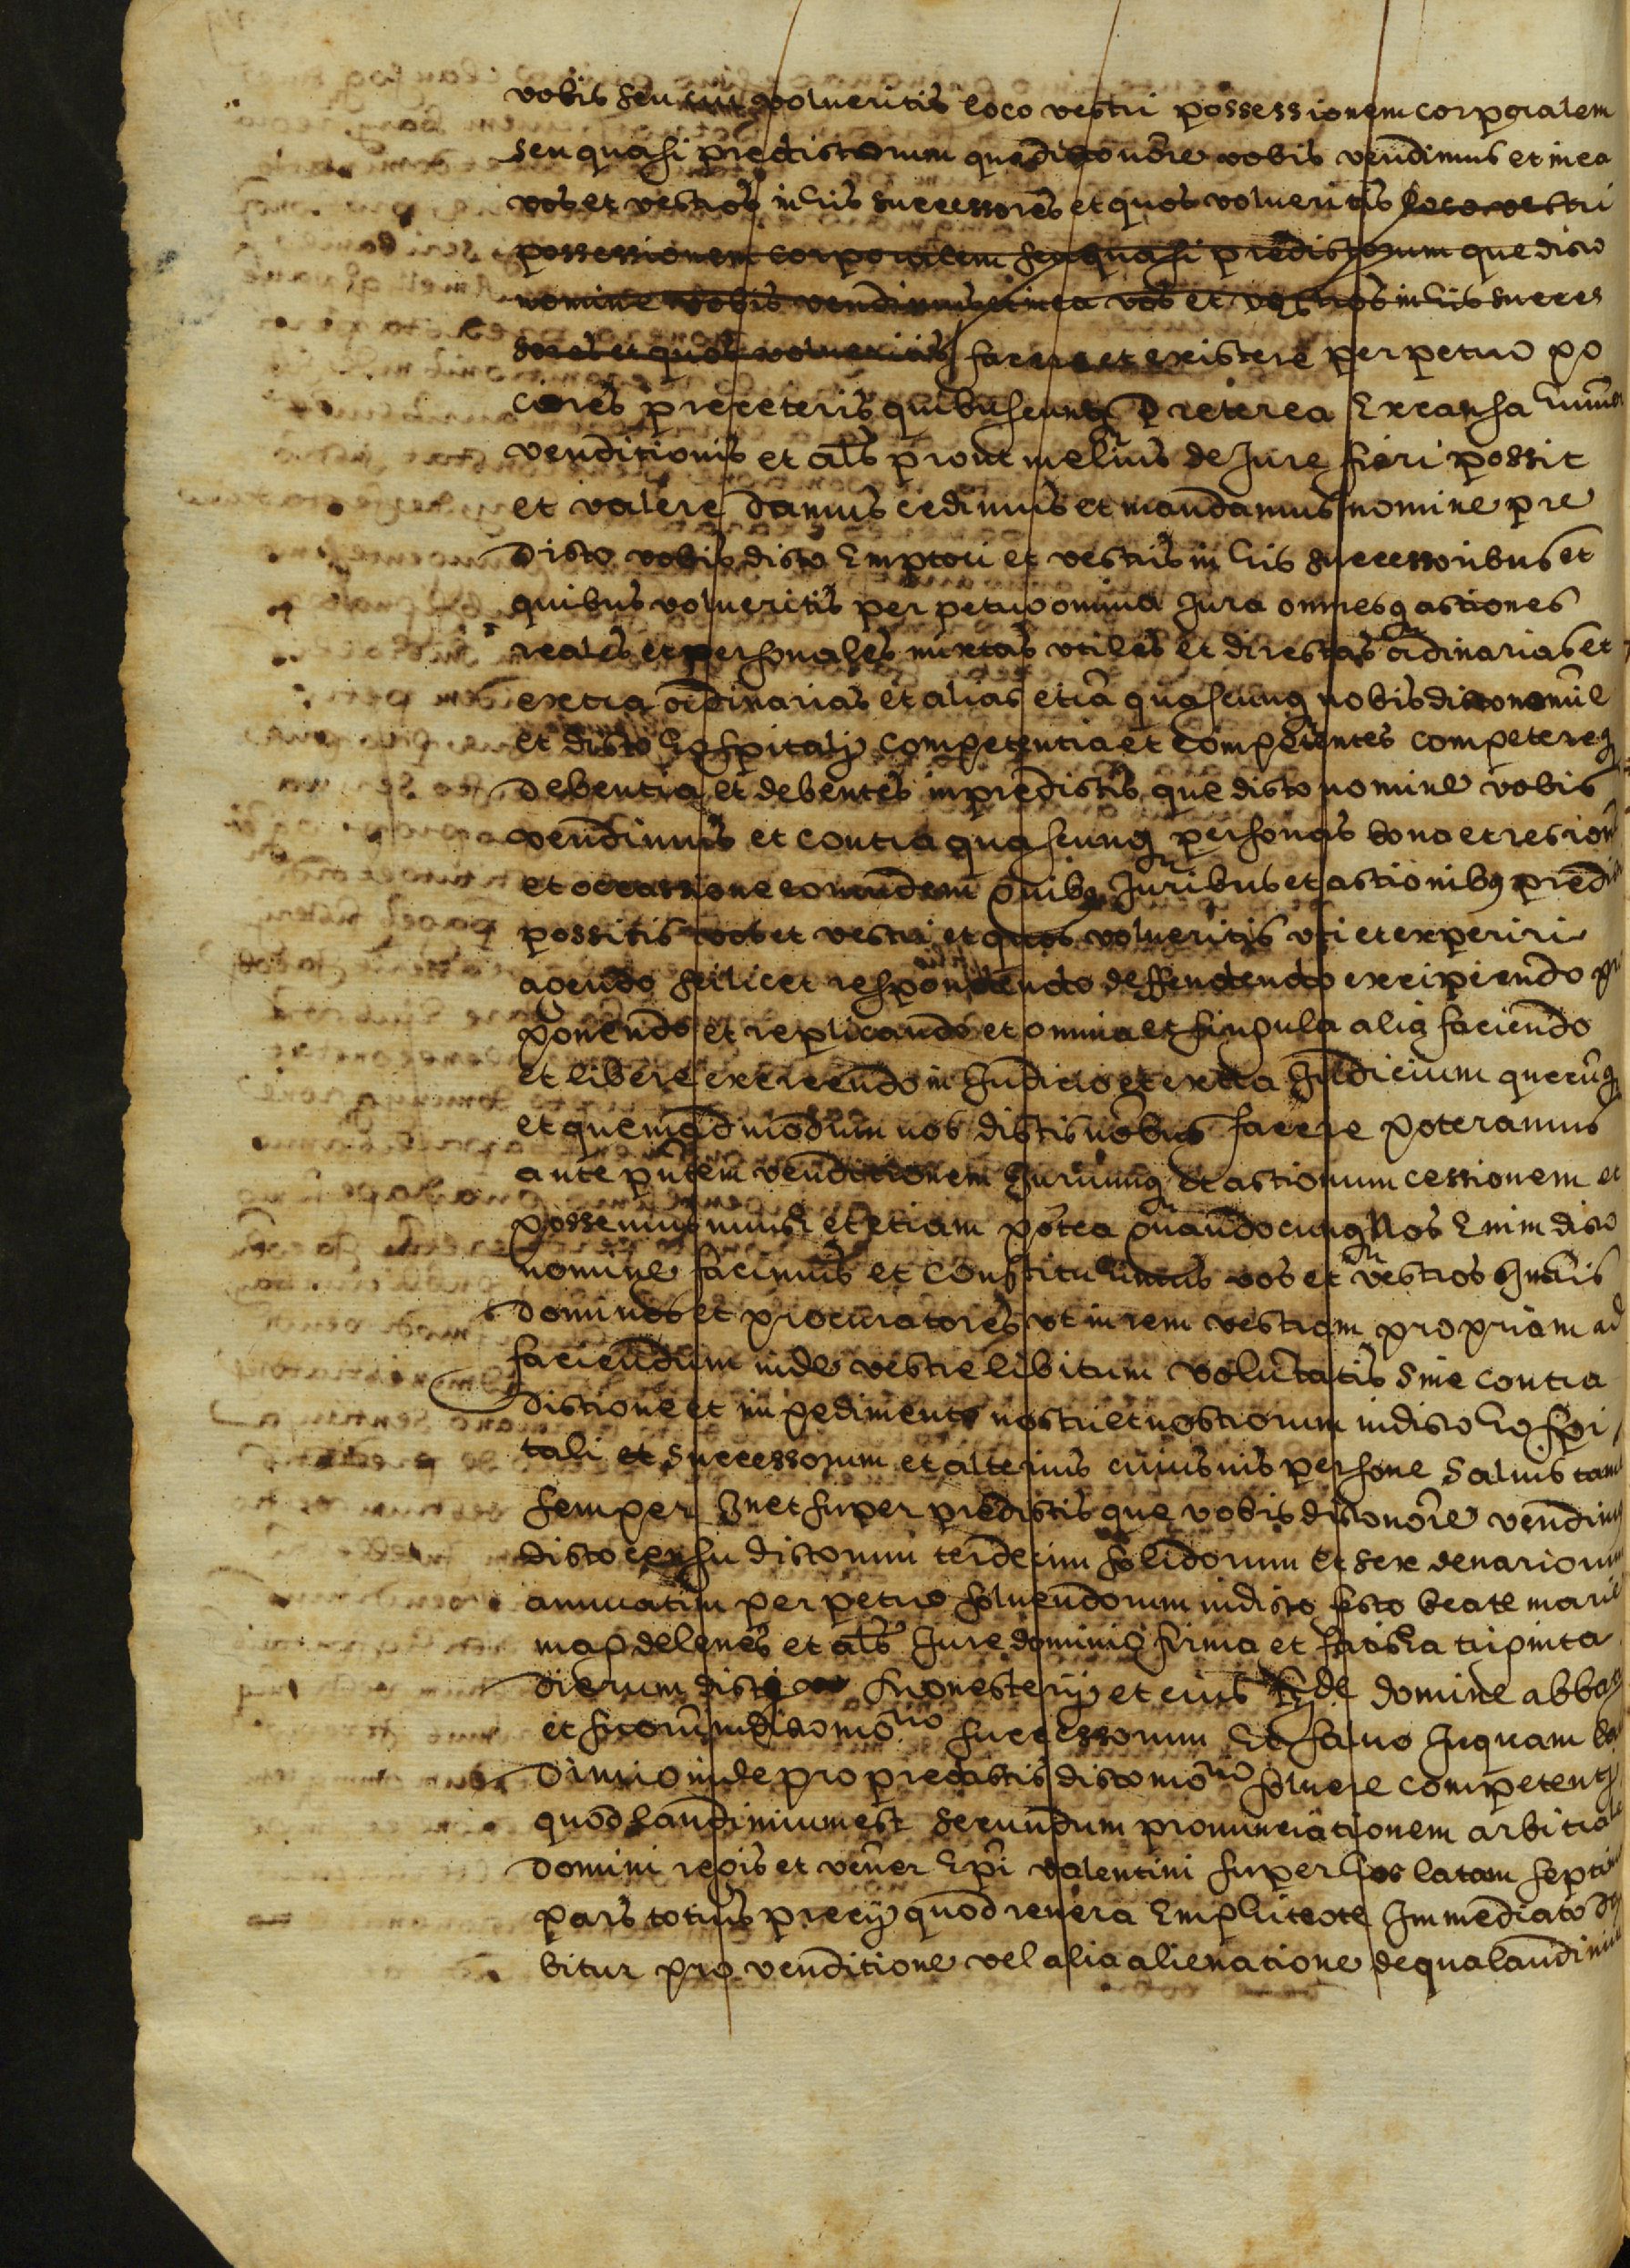 vobis seu cui volueritis loco vestri possessionem corporalem
seu quasi predictorum que dicto noīe vobis vendimus et in ea
vos et vestros in his successores et quos volueritis loco vestri
possessionem corporalem seu quasi predictorum que dicto
nomine vobis vendimus et in ea vos et vestros in his succes
sores et quos volueritis facere et existere perpetuo po
ciores pre ceteris quibuscunq Preterea Ex causa huiusmōi
venditionis et als prout melius de Jure fieri possit
et valere damus cedimus et mandamus nomine pre
dicto vobis dicto Emptori et vestris in his successoribus et
quibus volueritis perpetuo omnia Jura omnesq actiones
reales et personales mixtas vtiles et directas ordinarias et
extra ordinarias et alias etiā quascunq nobis dicto nomīe
et dicto hospitalj competentia et competentes competereq
debentia et debentes in predictis que dicto nomine vobis
vendimus et contra quascunq personas bona et res iōne
et occassione eorumdem Quibq Juribus et actionibq predic
possitis vos et vestri et quos volueritis vti et experiri
agendo scilicet respondendo deffendendo excipiendo pro
ponendo et replicando et omnia et singula alia faciendo
et libere exercendo in Judicio et extra Judicium quecūq
et quemadmodum nos dictis noībus facere poteramus
ante pntem venditionem Juriumq et actionum cessionem et
possemus nunc et etiam postea quandocunq Nos Enim dicto
nomine facimus et constituimus vos et vestros in his
dominos et procuratores vt in rem vestram propriam ad
faciendum inde vestre libitum voluntatis sine contra
dictione et impedimento nostri et nostrorum in dicto hospi
tali et successorum et alterius cuiusuis persone Saluis tamē
semper In et super predictis que vobis dicto noīe vendimus
dicto censu dictorum terdecim solidorum et sex denariorum
annuatim perpetuo soluendorum in dicto festo beate marie
magdelenes et als Jure dominio firma et fatica triginta
dierum dicti monesterij et eius domine abbatisse
et suorū in dicto mōrio successorum Et saluo Inquam lau
dimio inde pro predictis dicto mōrio soluere competenti
quod laudimium est secundum pronunciationem arbitrale
domini regis et vener Epi valentini super hos latam septima
pars totius precij quod reuera Emphiteote Immediato da
bitur pro venditione vel alia alienatione de qua laudimiu